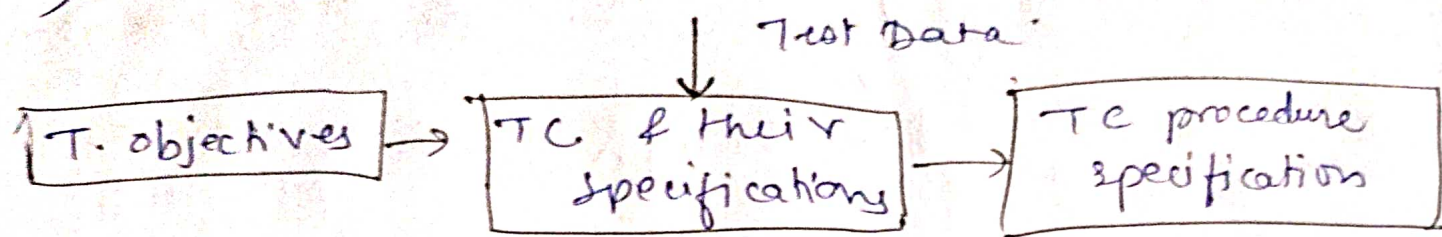 Test Data
T. objectives
TC & their
specifications
TC procedure
specification